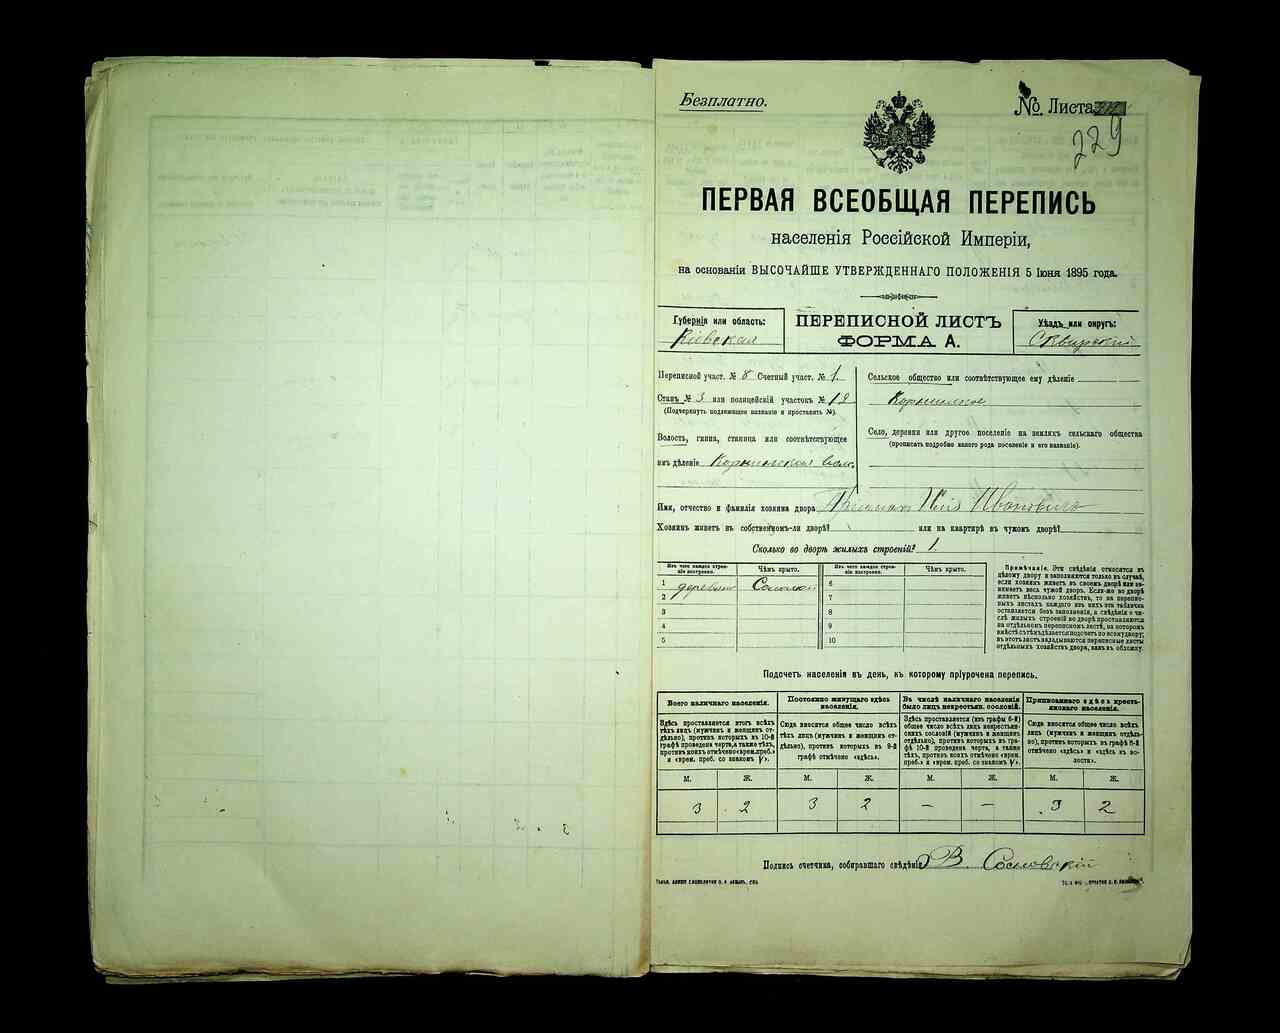 Безплатно.
№ Листа
229
ПЕРВАЯ ВСЕОБЩАЯ ПЕРЕПИСЬ
населенія Россійской Имперіи,
на основаніи ВЫСОЧАЙШЕ УТВЕРЖДЕННАГО ПОЛОЖЕНІЯ 5 Іюня 1895 года.
Губернія или область:
Кіевская
ПЕРЕПИСНОЙ ЛИСТЪ
ФОРМА А.
Уѣздъ или округъ:
Сквирскій
Переписной участ. № 8 Счетный участ. № 1.
Станъ № 3 или полицейскій участокъ № 12
(Подчеркнуть подлежащее названіе и проставить №).
Волость, гмина, станица или соотвѣтствующее
имъ дѣленіе Корнинская вол.
Сельское общество или соотвѣтствующее ему дѣленіе
Корнинское
Село, деревня или другое поселеніе на земляхъ сельскаго общества
(прописать подробно какого рода поселеніе и его названіе).
Имя, отчество и фамилія хозяина двора Ивановичъ
Хозяинъ живетъ въ собственномъ-ли дворѣ? или на квартирѣ въ чужомъ дворѣ?
Сколько во дворѣ жилыхъ строеній? 1.
Изъ чего каждое строеніе построено. Чѣмъ крыто. Изъ чего каждое строеніе построено. Чѣмъ крыто.
1 деревян Солом 6
2 7
3 8
4 9
5 10
Примѣчаніе. Эти свѣдѣнія относятся къ
цѣлому двору и заполняются только въ случаѣ,
если хозяинъ живетъ въ своемъ дворѣ или занимаетъ
весь чужой дворъ. Если-же во дворѣ
живетъ нѣсколько хозяйствъ, то на переписныхъ
листахъ каждаго изъ нихъ эта табличка
оставляется безъ заполненія, а свѣдѣнія о числѣ
жилыхъ строеній во дворѣ проставляются
на отдѣльномъ переписномъ листѣ, на которомъ
вмѣстѣ съ тѣмъ дѣлается подсчетъ по всему двору;
въ этотъ листъ вкладываются переписные листы
отдѣльныхъ хозяйствъ двора, какъ въ обложку.
Подсчетъ населенія въ день, къ которому пріурочена перепись.
Всего наличнаго населенія.
Здѣсь проставляется итогъ всѣхъ
тѣхъ лицъ (мужчинъ и женщинъ отдѣльно),
противъ которыхъ въ 10-й
графѣ проведена черта, а также тѣхъ,
противъ коихъ отмѣчено «врем. преб.»
и «врем. преб. со знакомъ V».
Постоянно живущаго здѣсь
населенія.
Сюда вносится общее число всѣхъ
тѣхъ лицъ (мужчинъ и женщинъ отдѣльно),
противъ которыхъ въ 9-й
графѣ отмѣчено «здѣсь».
Въ числѣ наличнаго населенія
было лицъ некрестьян. сословій.
Здѣсь проставляется (изъ графы 6-й)
общее число всѣхъ лицъ некрестьянскихъ
сословій (мужчинъ и женщинъ
отдѣльно), противъ которыхъ въ графѣ
10-й проведена черта, а также
тѣхъ, противъ коихъ отмѣчено «врем.
преб.» и «врем. преб. со знакомъ V».
Приписаннаго здѣсь крестьянскаго
населенія.
Сюда вносится общее число всѣхъ
лицъ (мужчинъ и женщинъ отдѣльно),
противъ которыхъ въ графѣ 8-й
отмѣчено «здѣсь» и «здѣсь въ волости».
М. Ж. М. Ж. М. Ж. М. Ж.
3 2 3 2 – – 3 2
Подпись счетчика, собиравшаго свѣдѣнія В. Сосновскій